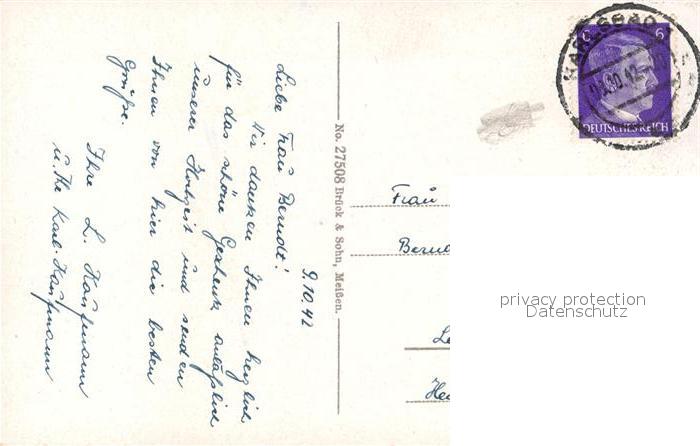 9.10.42
Liebe Frau Berndt!
Wir danken Ihnen herzlich
für das schöne Geschenk anläßlich
unserer Hochzeit und senden
Ihnen von hier die besten
Grüße.
Ihre L. Kaufmann
u. Ihr Karl Kaufmann
No. 27508 Brück & Sohn, Meißen.
KARLSBAD
DEUTSCHES REICH
6
Frau
Bernd
privacy protection
Datenschutz